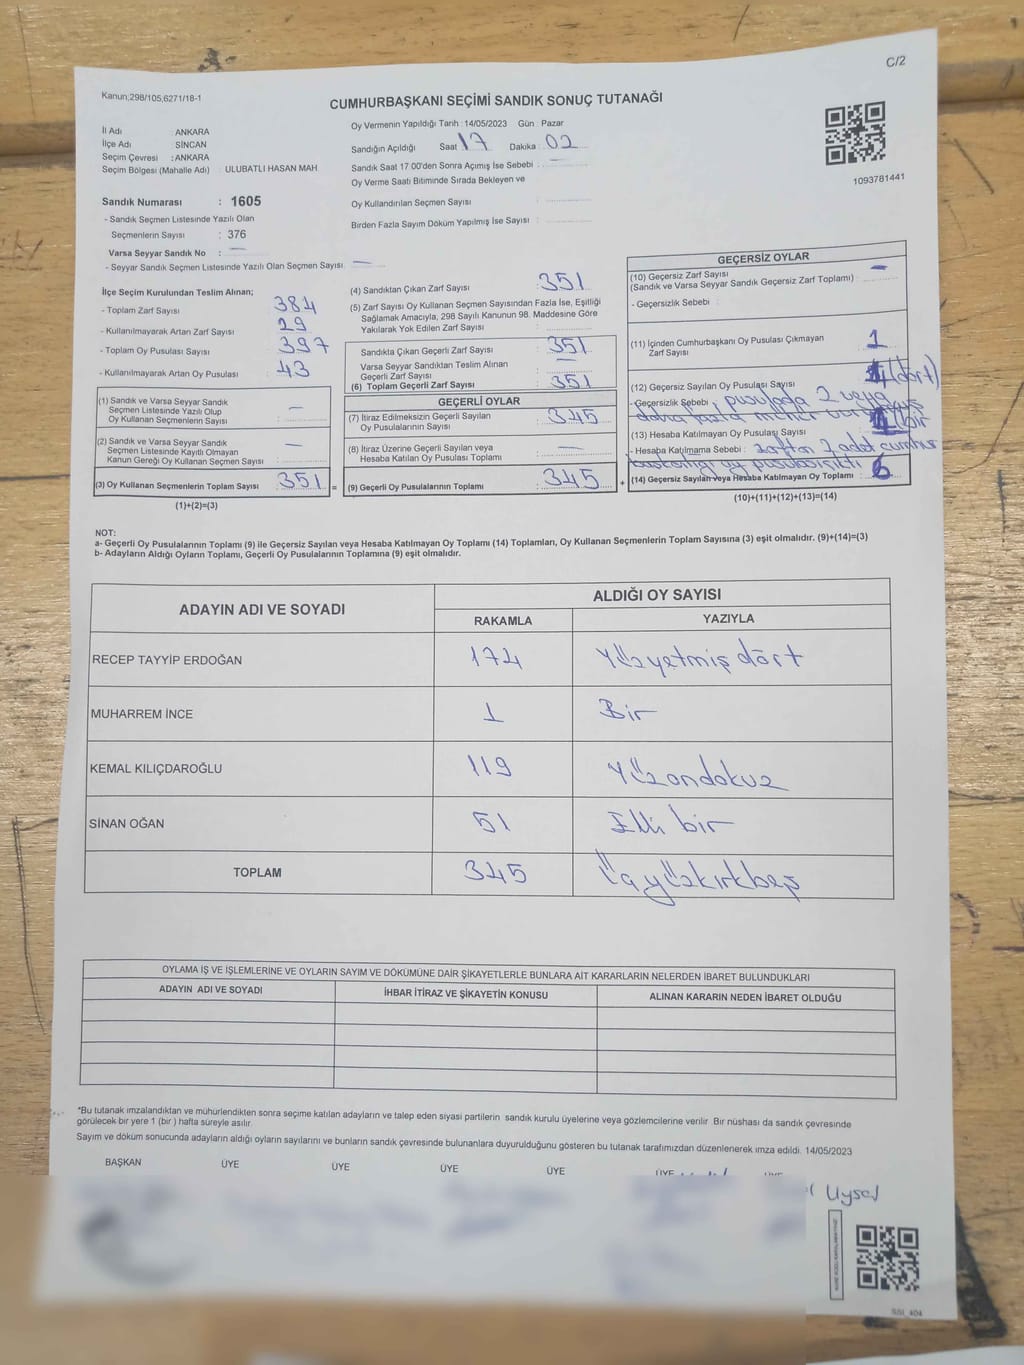 C/2
Kanun;298/105,6271/18-1
CUMHURBAŞKANI SEÇİMİ SANDIK SONUÇ TUTANAĞI
İl Adı : ANKARA
İlçe Adı : SİNCAN
Seçim Çevresi : ANKARA
Seçim Bölgesi (Mahalle Adı) : ULUBATLI HASAN MAH
Sandık Numarası : 1605
- Sandık Seçmen Listesinde Yazılı Olan
Seçmenlerin Sayısı : 376
Varsa Seyyar Sandık No : —
- Seyyar Sandık Seçmen Listesinde Yazılı Olan Seçmen Sayısı : —
Oy Vermenin Yapıldığı Tarih :14/05/2023 Gün : Pazar
Sandığın Açıldığı Saat 17 Dakika : 02
Sandık Saat 17:00'den Sonra Açımış İse Sebebi : —
Oy Verme Saati Bitiminde Sırada Bekleyen ve
Oy Kullandırılan Seçmen Sayısı :
Birden Fazla Sayım Döküm Yapılmış İse Sayısı :
1093781441
İlçe Seçim Kurulundan Teslim Alınan;
- Toplam Zarf Sayısı : 384
- Kullanılmayarak Artan Zarf Sayısı : 29
- Toplam Oy Pusulası Sayısı : 397
- Kullanılmayarak Artan Oy Pusulası : 43
(1) Sandık ve Varsa Seyyar Sandık
Seçmen Listesinde Yazılı Olup
Oy Kullanan Seçmenlerin Sayısı : —
(2) Sandık ve Varsa Seyyar Sandık
Seçmen Listesinde Kayıtlı Olmayan
Kanun Gereği Oy Kullanan Seçmen Sayısı : —
(3) Oy Kullanan Seçmenlerin Toplam Sayısı : 351 =
(1)+(2)=(3)
(4) Sandıktan Çıkan Zarf Sayısı : 351
(5) Zarf Sayısı Oy Kullanan Seçmen Sayısından Fazla İse, Eşitliği
Sağlamak Amacıyla, 298 Sayılı Kanunun 98. Maddesine Göre
Yakılarak Yok Edilen Zarf Sayısı :
Sandıkta Çıkan Geçerli Zarf Sayısı : 351
Varsa Seyyar Sandıktan Teslim Alınan
Geçerli Zarf Sayısı : —
(6) Toplam Geçerli Zarf Sayısı : 351
GEÇERLİ OYLAR
(7) İtiraz Edilmeksizin Geçerli Sayılan
Oy Pusulalarının Sayısı : 345
(8) İtiraz Üzerine Geçerli Sayılan veya
Hesaba Katılan Oy Pusulası Toplamı : —
(9) Geçerli Oy Pusulalarının Toplamı : 345 +
GEÇERSİZ OYLAR
(10) Geçersiz Zarf Sayısı
(Sandık ve Varsa Seyyar Sandık Geçersiz Zarf Toplamı) : —
- Geçersizlik Sebebi :
(11) İçinden Cumhurbaşkanı Oy Pusulası Çıkmayan
Zarf Sayısı : 1
(12) Geçersiz Sayılan Oy Pusulası Sayısı : 4 (dört)
- Geçersizlik Sebebi : pusulada 2 veya
daha fazla mühür
(13) Hesaba Katılmayan Oy Pusulası Sayısı : 1 bir
- Hesaba Katılmama Sebebi : zarftan 2 adet cumhur
başkanlığı oy pusulası çıktı
(14) Geçersiz Sayılan veya Hesaba Katılmayan Oy Toplamı : 6
(10)+(11)+(12)+(13)=(14)
NOT:
a- Geçerli Oy Pusulalarının Toplamı (9) ile Geçersiz Sayılan veya Hesaba Katılmayan Oy Toplamı (14) Toplamları, Oy Kullanan Seçmenlerin Toplam Sayısına (3) eşit olmalıdır. (9)+(14)=(3)
b- Adayların Aldığı Oyların Toplamı, Geçerli Oy Pusulalarının Toplamına (9) eşit olmalıdır.
ADAYIN ADI VE SOYADI
ALDIĞI OY SAYISI
RAKAMLA YAZIYLA
RECEP TAYYİP ERDOĞAN 174 Yüzyetmiş dört
MUHARREM İNCE 1 Bir
KEMAL KILIÇDAROĞLU 119 Yüzondokuz
SİNAN OĞAN 51 Elli bir
TOPLAM 345 Üçyüzkırkbeş
OYLAMA İŞ VE İŞLEMLERİNE VE OYLARIN SAYIM VE DÖKÜMÜNE DAİR ŞİKAYETLERLE BUNLARA AİT KARARLARIN NELERDEN İBARET BULUNDUKLARI
ADAYIN ADI VE SOYADI İHBAR İTİRAZ VE ŞİKAYETİN KONUSU ALINAN KARARIN NEDEN İBARET OLDUĞU
*Bu tutanak imzalandıktan ve mühürlendikten sonra seçime katılan adayların ve talep eden siyasi partilerin sandık kurulu üyelerine veya gözlemcilerine verilir. Bir nüshası da sandık çevresinde
görülecek bir yere 1 (bir ) hafta süreyle asılır.
Sayım ve döküm sonucunda adayların aldığı oyların sayılarını ve bunların sandık çevresinde bulunanlara duyurulduğunu gösteren bu tutanak tarafımızdan düzenlenerek imza edildi. 14/05/2023
BAŞKAN ÜYE ÜYE ÜYE ÜYE ÜYE ÜYE
Uysal